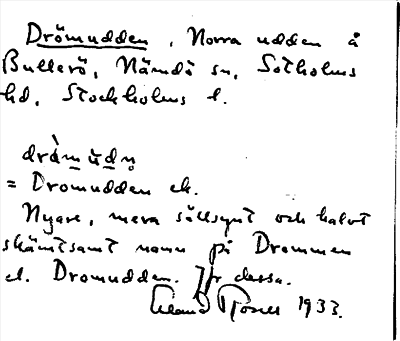 Drömudden, Norra udden å
Bullerö, Nämdö sn, Sotholms
hd, Stockholms l.
drö̀mùdn̥
= Dromudden ek.
Nyare, mera sällsynt och halvt
skämtsamt namn på Drommen
el. Dromudden. Jfr dessa.
Erland Rosell 1933.